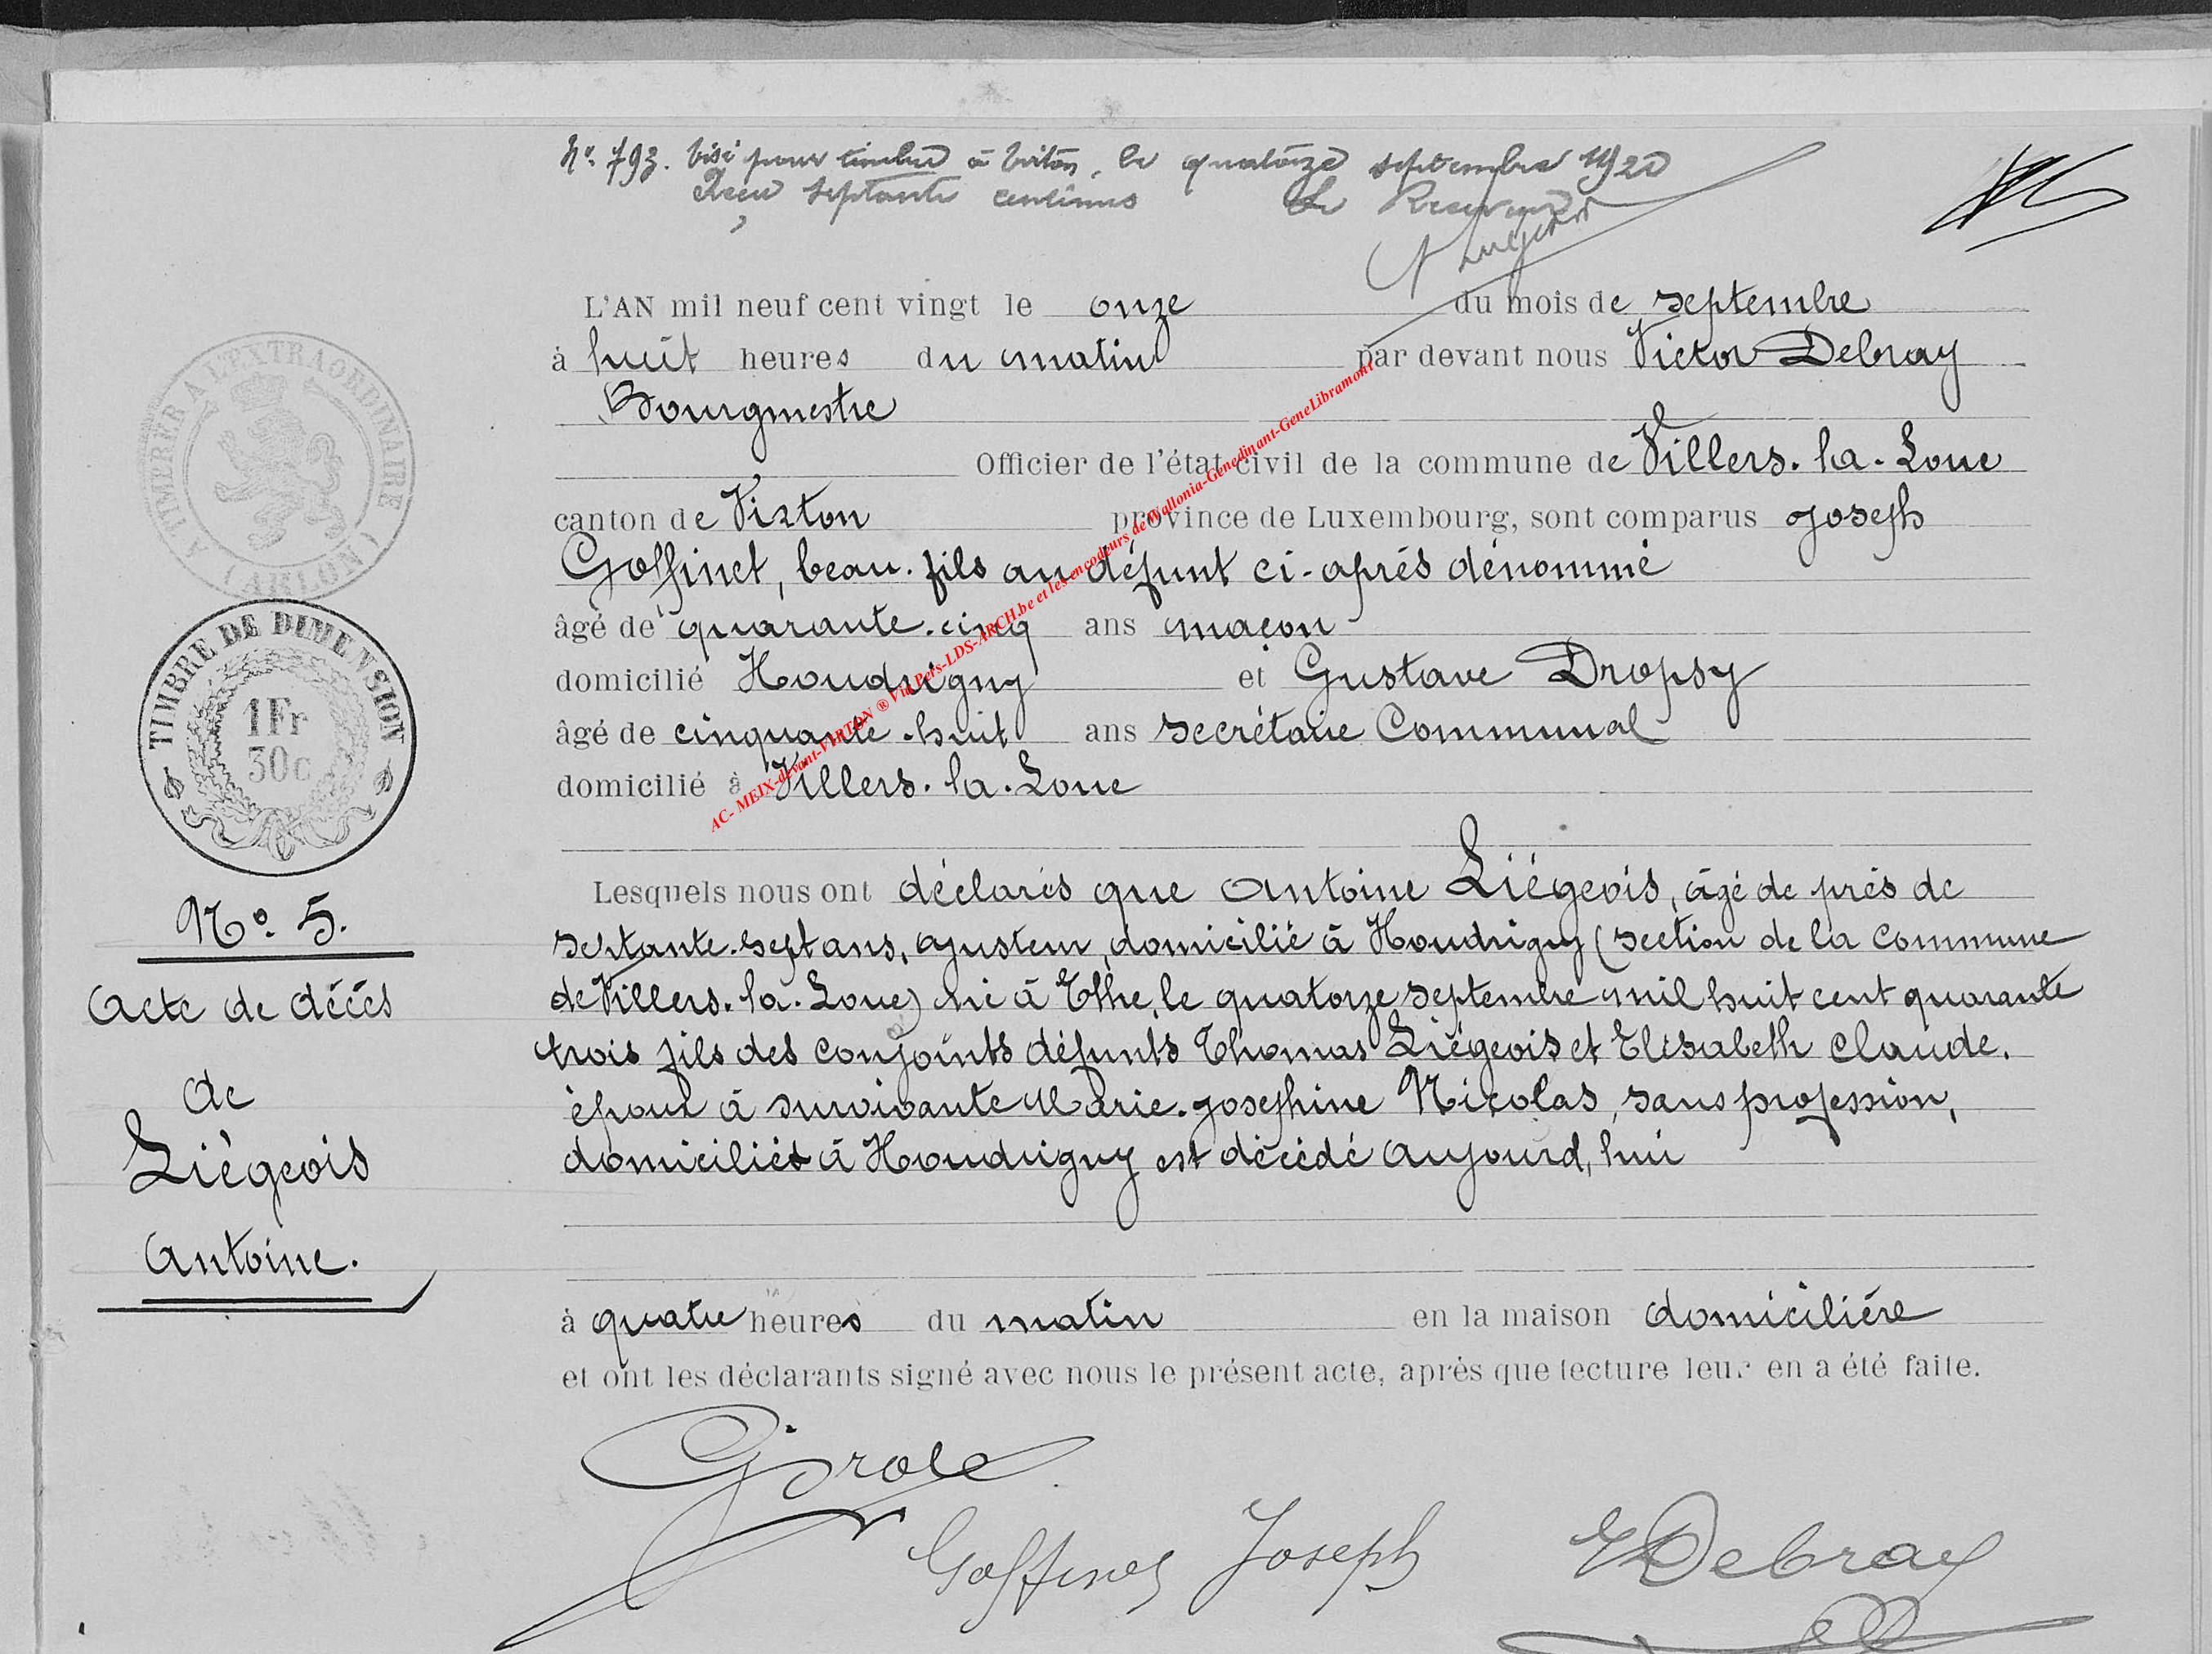 Nº 793. Visé pour timbre à Virton, le quatorze septembre 1920
Reçu septante centimes Le Receveur
L'AN mil neuf cent vingt le onze du mois de septembre
à huit heures du matin par devant nous Victor Debray
Bourgmestre
Officier de l'état civil de la commune de Villers-la-Loue
canton de Virton province de Luxembourg, sont comparus Joseph
Goffinet, beau-fils au défunt ci-après dénommé
âgé de quarante-cinq ans maçon
domicilié Houdrigny et Gustave Dropsy
âgé de cinquante-huit ans secrétaire Communal
domicilié à Villers-la-Loue
Lesquels nous ont déclarés que Antoine Liégeois, âgé de près de
septante-sept ans, ajusteur, domicilié à Houdrigny (section de la commune
de Villers-la-Loue) né à Ethe, le quatorze septembre mil huit cent quarante
trois fils des conjoints défunts Thomas Liégeois et Elisabeth Claude.
époux à survivante Marie-Josephine Nicolas, sans profession,
domiciliés à Houdrigny est décédé aujourd'hui
à quatre heures du matin en la maison domicilière
et ont les déclarants signé avec nous le présent acte, après que lecture leur en a été faite.
Goffinet Joseph VDebray
A TIMBRER A L'EXTRAORDINAIRE
(ARLON)
TIMBRE DE DIMENSION
1Fr
30c
Nº 5.
Acte de décès
de
Liégeois
Antoine.
AC- MEIX-devant-VIRTON ® Via Pers-LDS-ARCH.be et les encodeurs de Wallonia-Genedinant-GeneLibramont